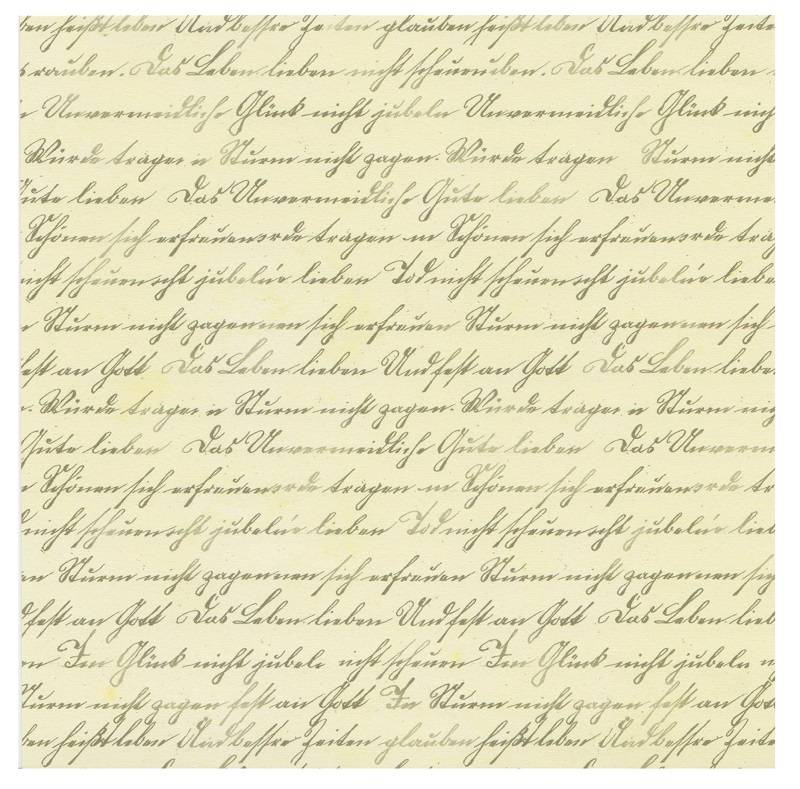 ben heißt leben Und bessre Zeiten glauben heißt leben Und bessre Zeite
s rauben. Das Leben lieben nicht scheuen den. Das Leben lieben
n Unvermeidliche Glück nicht jubeln Unvermeidliche Glück nich
Würde tragen in Sturm nicht zagen. Würde tragen Sturm nicht
Gute lieben Das Unvermeidliche Gute lieben Das Unverme
Schönen sich erfreuen rde tragen m Schönen sich erfreuen rde tra
nicht scheuen cht jubeln lieben Tod nicht scheuen cht jubeln liebe
n Sturm nicht zagen nen sich erfreuen Sturm nicht zagen nen sich
fest an Gott Das Leben lieben Und fest an Gott Das Leben liebe
n. Würde tragen in Sturm nicht zagen. Würde tragen in Sturm nic
Gute lieben Das Unvermeidliche Gute lieben Das Unverm
n Schönen sich erfreuen rde tragen m Schönen sich erfreuen rde tr
d nicht scheuen cht jubeln lieben Tod nicht scheuen cht jubeln lieb
en Sturm nicht zagen nen sich erfreuen Sturm nicht zagen nen sic
d fest an Gott Das Leben lieben Und fest an Gott Das Leben lieb
en Im Glück nicht jubeln nicht scheuen Im Glück nicht jubeln n
Sturm nicht zagen fest an Gott In Sturm nicht zagen fest an Gott
ben heißt leben Und bessre Zeiten glauben heißt leben Und bessre Zeite